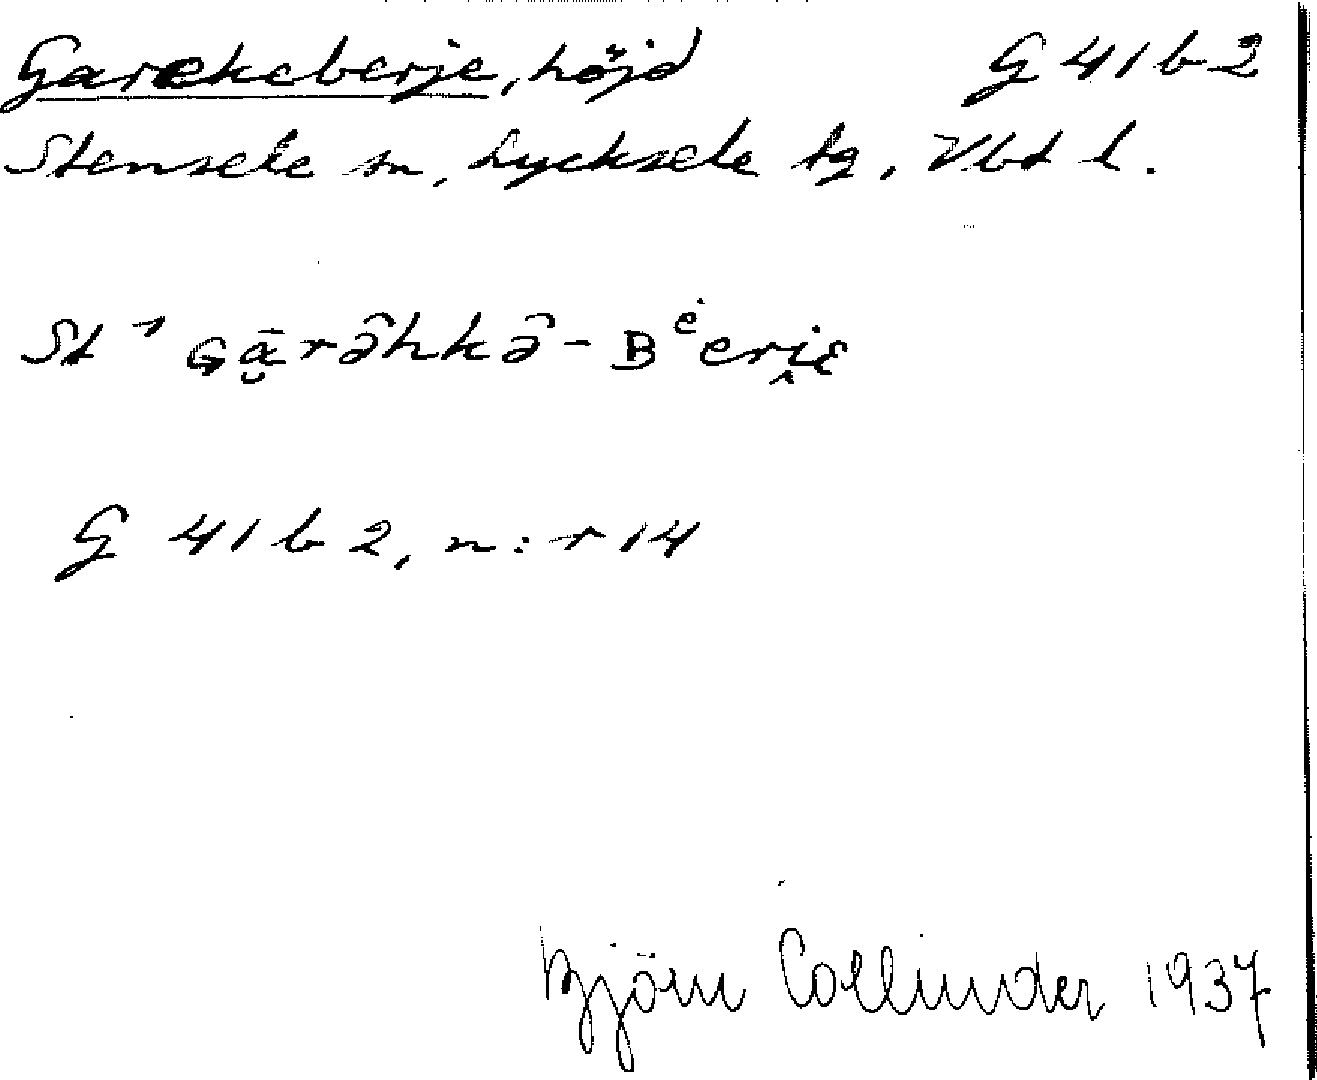 Garekeberje, höjd G 41 b 2
Stensele sn, Lycksele tg, Vbd l.
St ⁊ Gā̮rə̂hkə̂-Bėeri̭ɛ
G 41 b 2, n:r 14
Björn Collinder 1937